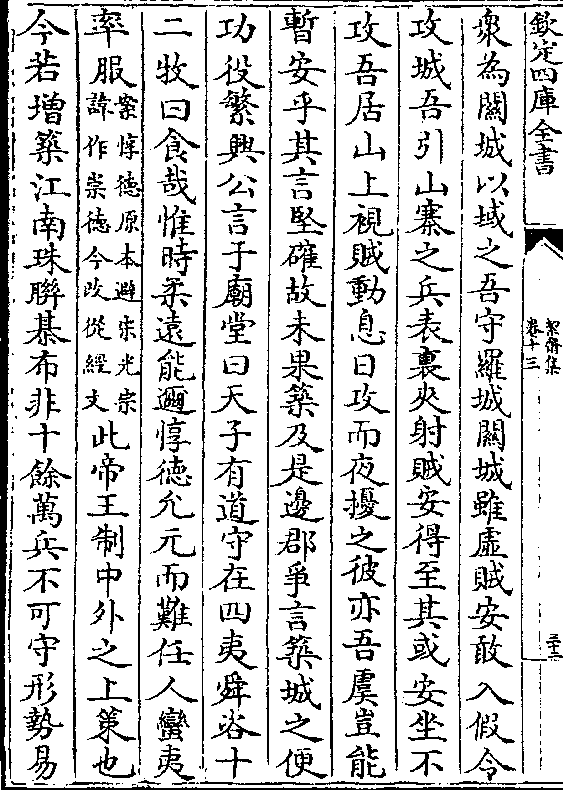 欽定四庫全書
絜齋集
卷十三
三十二
衆為關城以域之吾守羅城關城雖虛賊安敢入假令
攻城吾引山寨之兵表裏夾射賊安得至其或安坐不
攻吾居山上視賊動息日攻而夜擾之彼亦吾虞豈能
暫安乎其言堅確故未果築及是邊郡爭言築城之便
功役繁興公言于廟堂曰天子有道守在四夷舜咨十
二牧曰食哉惟時柔遠能邇惇德允元而難任人蠻夷
率服案惇德原本避宋光宗
諱作崇德今改從經文此帝王制中外之上策也
今若增築江南珠聯棊布非十餘萬兵不可守形勢易